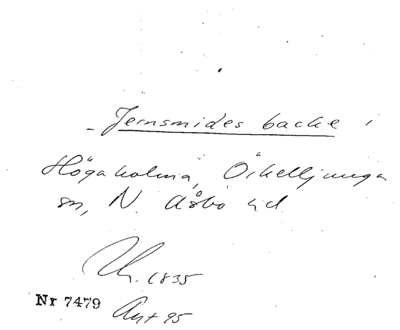 Jernsmides backe i
Högaholma, Örkelljunga
sn, N. Åsbo hd
1835
Nr 7479